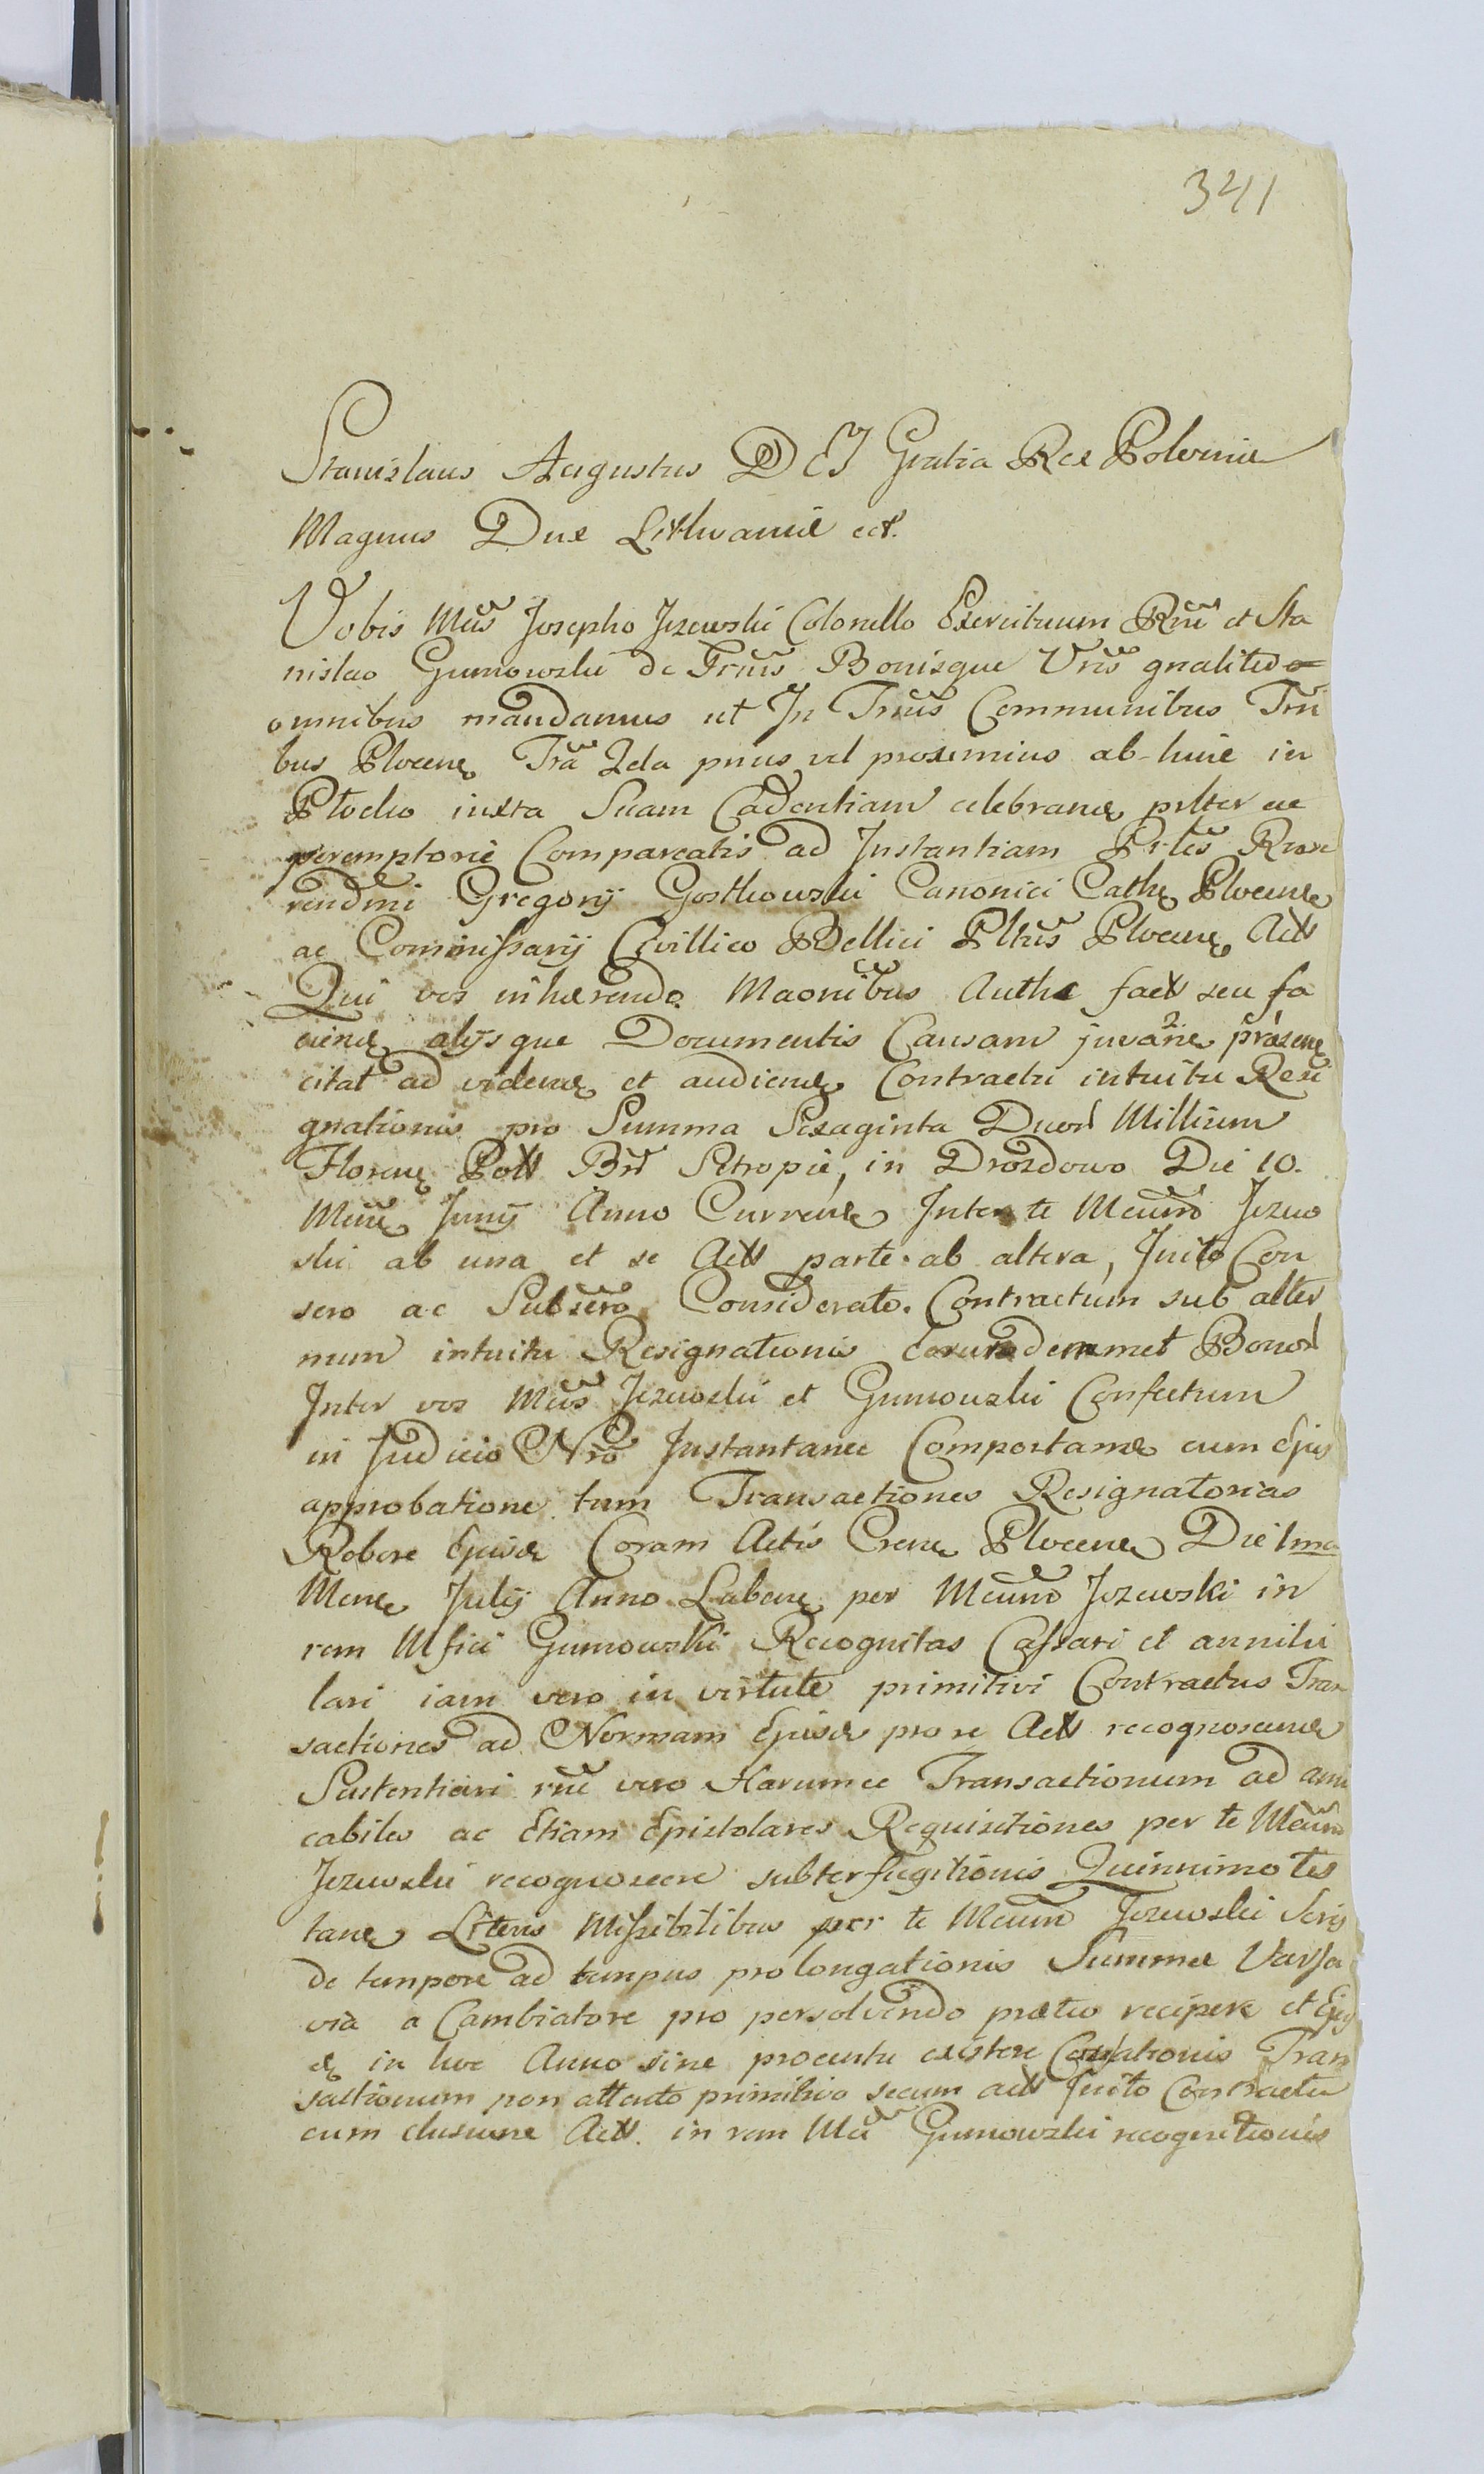 341
Stanislaus Augustus DEI Gratia Rex Poloniæ
Magnus Dux Lithvaniæ ect.
Vobis Mcis Josepho Jezewski Colonello Exercituum Rni et Sta
nislao Gumowski de Trnis Bonisque Vris gnaliter
omnibus mandamus ut In Trnis Communibus Trri
bus Plocen Tra Zda prius vel proximius ab-huic in
Plocko iuxta Suam Cadentiam celebrand prlter ac
peremptorie Compareatis ad Instantiam Prles Rzove
rendmi Gregorij Gostkowski Canonici Cath Plocen
ac Commissarij Civillico Bellici Pltus Plocen Act
Qui vos inhærendo Maonibus Auth fact seu fa
ciend alijsque Documentis Causam juvan præsen
citat ad vidend et audiend Contractu intuitu Resi
gnationis pro Summa Sexaginta Duor Millium
Floren Poll Br Stropie, in Drozdowo Die 10.
Mense Junij Anno Curren Inter te Mcum Jezew
ski ab una et se Act parte ab altera, Inito Con
sero ac Subsero Considerato. Contractum sub alter
num intuitu Resignationis eorundemmet Bonor
Inter vos Mcis Jezewski et Gumowski Confectum
in Judicio Nro Instantanee Comportand cum Ejus
approbatione tum Transactiones Resignatorias
Robore Ejusd Coram Actis Cren Plocen Die 1ma
Mens Julij Anno Laben per Mcum Jezewski in
rem Mfici Gumowski Recognitas Cassari et annihi
lari iam vero in virtute primitivi Contractus Tran
sactiones ad Normam Ejusd pro se Act recognoscend
Sustentiari vero Harumce Transactionum ad ami
cabiles ac Etiam Epistolares Requisitiones per te Mcum
Jezewski recognoscere subterfugitionis Quinnimo tes
tan Literis Missibilibus per te Mcum Jezewski Scrip
de tempore ad tempus prolongationis Summæ Varsa
via a Cambiatore pro persolvendo prætio recipere et Ejus
d in hoc Anno sine procentu existere Cassationis Tran
sactionum non attento primitivo secum act Inito Contractu
cum elusione Act. in rem Mci Gumowski recognitionis